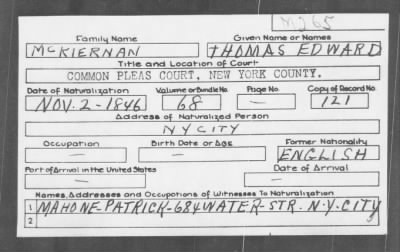 M265
Family Name Given Name or Names
McKIERNAN THOMAS EDWARD
Title and Location of Court
COMMON PLEAS COURT, NEW YORK COUNTY.
Date of Naturalization Volume or Bundle No. Page No. Copy of Record No.
NOV. 2-1846 68 — 121
Address of Naturalized Person
N Y CITY
Occupation Birth Date or Age Former Nationality
— — ENGLISH
Port of Arrival in the United States Date of Arrival
— —
Names, Addresses and Occupations of Witnesses To Naturalization
1 MAHONE-PATRICK-684 WATER-STR. N.Y.CITY
2